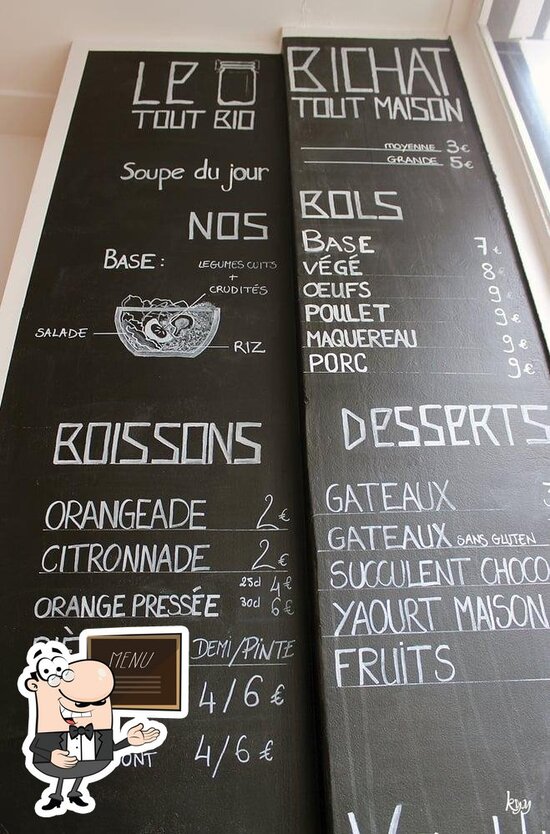 LE BICHAT
TOUT BIO TOUT MAISON
Soupe du jour
MOYENNE 3€
GRANDE 5€
NOS BOLS
BASE :
LEGUMES CUITS
+
CRUDITÉS
SALADE
RIZ
BASE 7€
VÉGÉ 8€
OEUFS 9€
POULET 9€
MAQUEREAU 9€
PORC 9€
BOISSONS
ORANGEADE 2€
CITRONNADE 2€
ORANGE PRESSÉE 25cl 4€
30cl 6€
DEMI/PINTE
4/6€
4/6€
DESSERTS
GATEAUX
GATEAUX SANS GLUTEN
SUCCULENT CHOCO
YAOURT MAISON
FRUITS
MENU
kyy